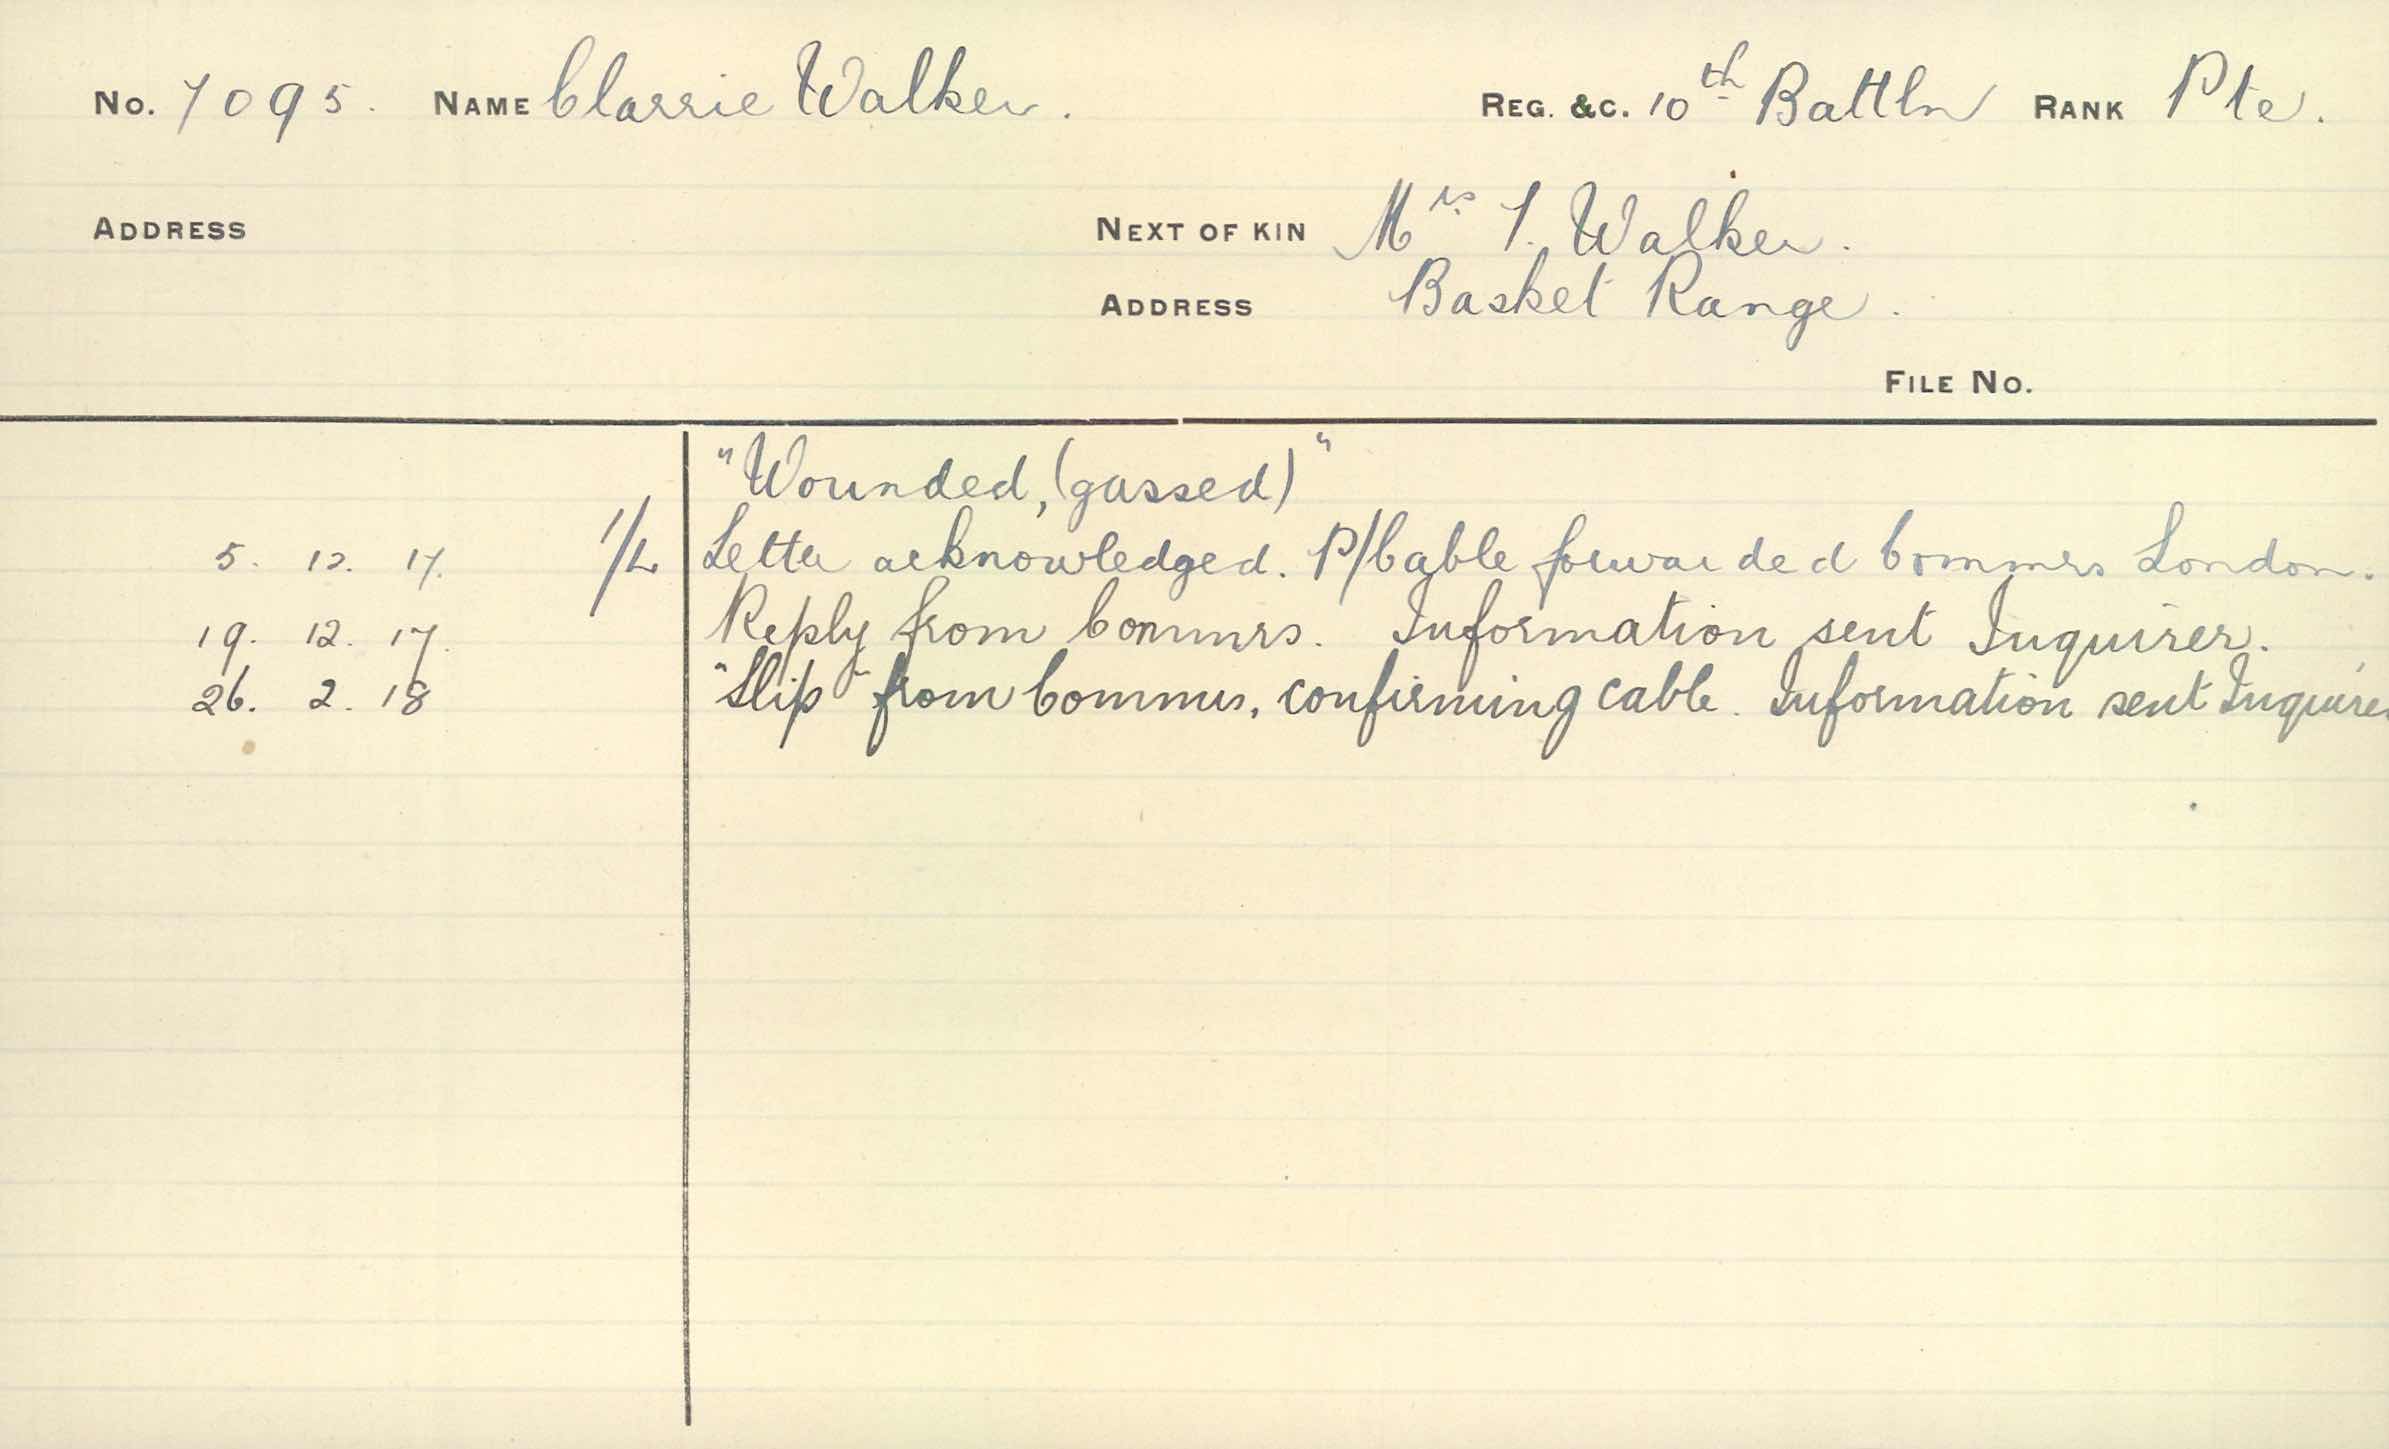 No. 7095. NAME Clarrie Walker. REG. &C. 10th Battln RANK Pte.
ADDRESS NEXT OF KIN Mrs I. Walker.
ADDRESS Basket Range.
FILE No.
"Wounded, (gassed)"
5. 12. 17. 1/L Letter acknowledged. P/Cable forwarded Commrs London.
19. 12. 17. Reply from Commrs. Information sent Inquirer.
26. 2. 18 "Slip" from Commrs, confirming cable. Information sent Inquirer